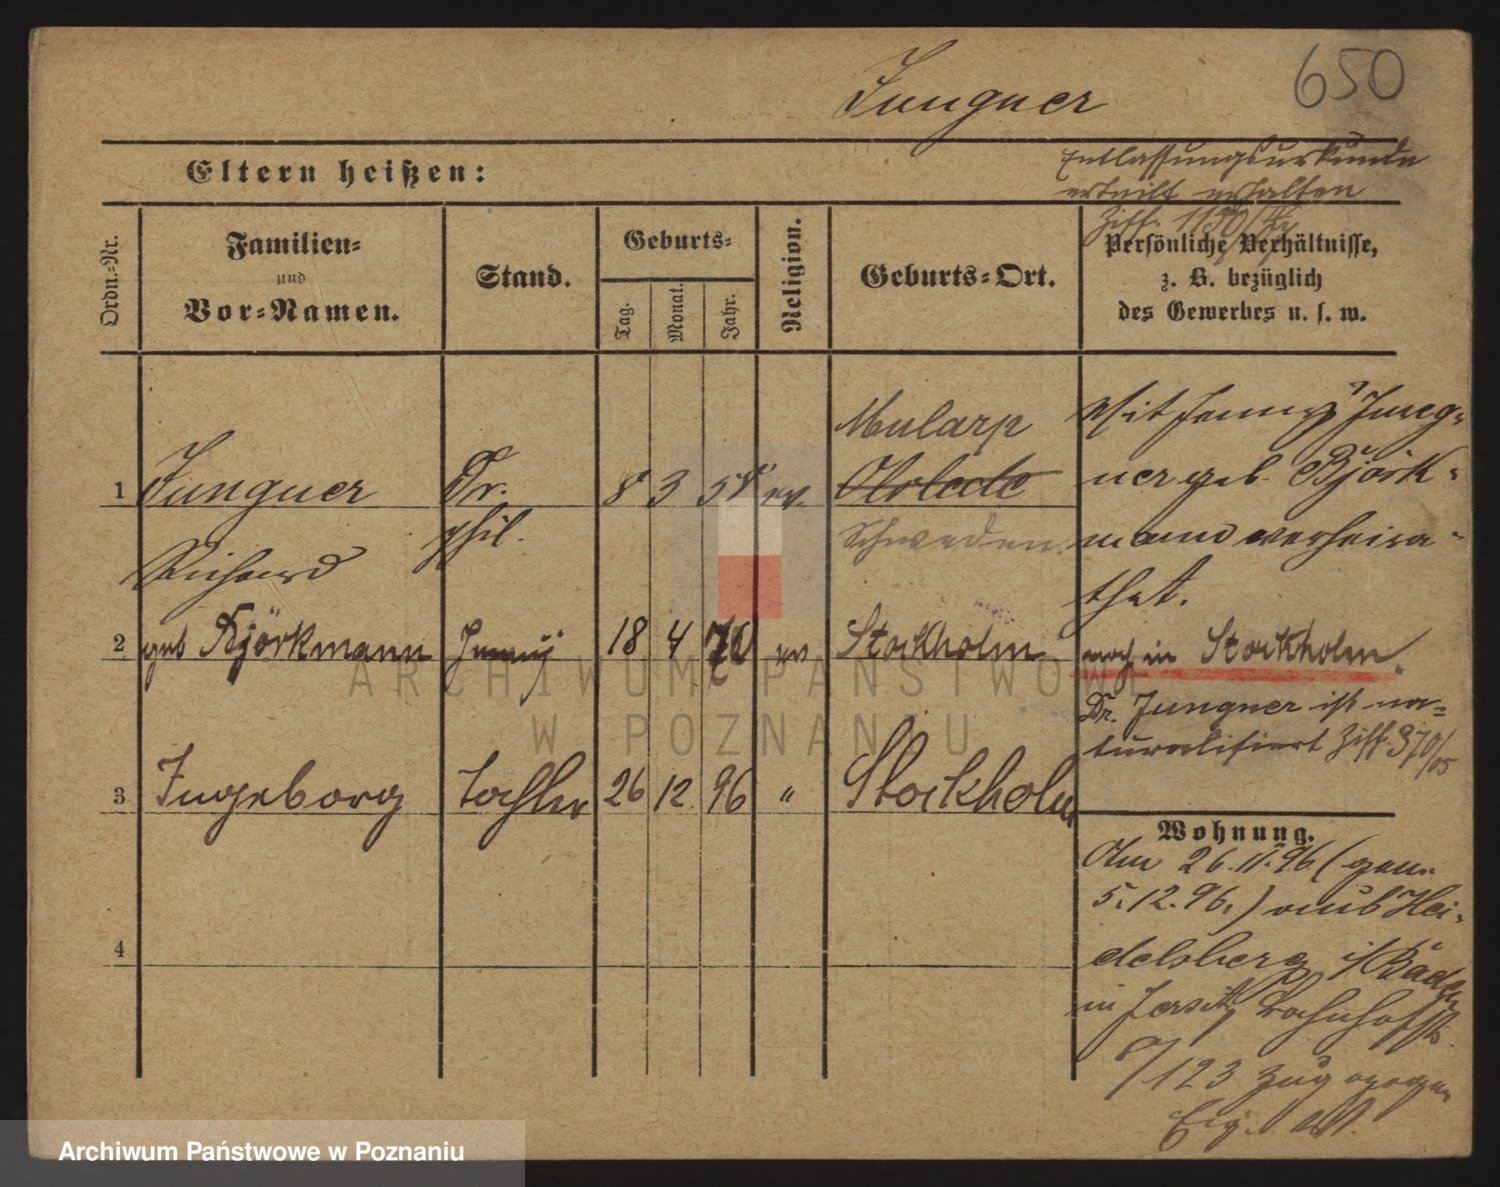 Jungner
650
Entlassungsurkunde
erteilt erhalten
Ziff. 1150
Eltern heißen:
Ordn.-Nr.
Familien-
und
Vor-Namen.
Stand.
Geburts-
Tag.
Monat.
Jahr.
Religion.
Geburts-Ort.
Persönliche Verhältnisse,
z. B. bezüglich
des Gewerbes u. s. w.
1 Jungner Dr. 8 3 58 ev. Mularp
Schweden
Richard phil.
Mit Jenny Jung-
ner geb. Björk-
mann verheira-
thet.
2 geb Björkmann Jenny 18 4 76 ev Stockholm
noch in Stockholm.
Dr. Jungner ist na-
turalisiert Ziff. 370/05
3 Ingeborg Tochter 26 12 96 " Stockholm
4
Wohnung.
Am 26.11.96 (gem.
5.12.96.) aus Hei-
delsberg i/Baden
in Jersitz Bahnhofstr.
8/123 zugezogen
ARCHIWUM PAŃSTWOWE
W POZNANIU
Archiwum Państwowe w Poznaniu